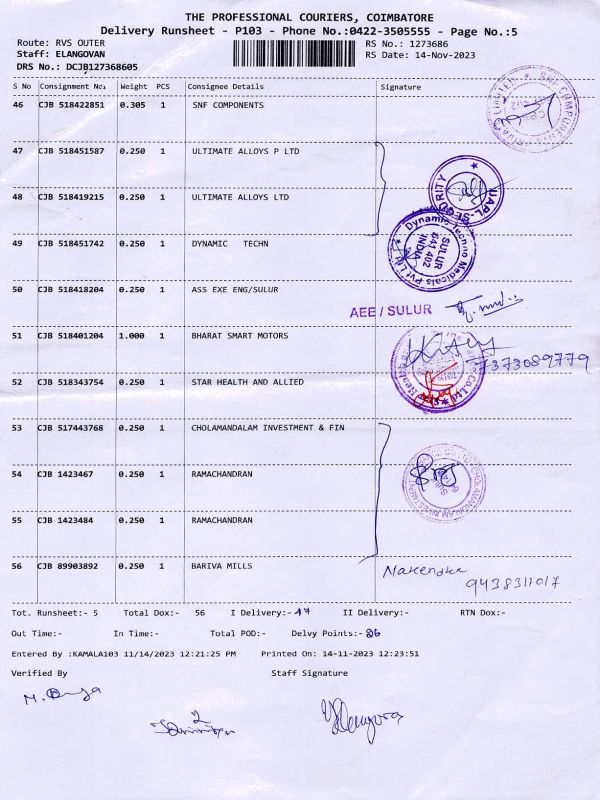 THE PROFESSIONAL COURIERS, COIMBATORE
Delivery Runsheet - P103 - Phone No.:0422-3505555 - Page No.:5
Route: RVS OUTER RS No.: 1273686
Staff: ELANGOVAN RS Date: 14-Nov-2023
DRS No.: DCJB127368605
S No Consignment No: Weight PCS Consignee Details Signature
46 CJB 518422851 0.305 1 SNF COMPONENTS
47 CJB 518451587 0.250 1 ULTIMATE ALLOYS P LTD
48 CJB 518419215 0.250 1 ULTIMATE ALLOYS LTD
UAPL-SECURITY
49 CJB 518451742 0.250 1 DYNAMIC TECHN
Dynamic Techno Medicals Pvt Ltd
SULUR
641 402
INDIA
50 CJB 518418204 0.250 1 ASS EXE ENG/SULUR
AEE / SULUR
51 CJB 518401204 1.000 1 BHARAT SMART MOTORS
7373089779
52 CJB 518343754 0.250 1 STAR HEALTH AND ALLIED
53 CJB 517443768 0.250 1 CHOLAMANDALAM INVESTMENT & FIN
54 CJB 1423467 0.250 1 RAMACHANDRAN
55 CJB 1423484 0.250 1 RAMACHANDRAN
56 CJB 89903892 0.250 1 BARIVA MILLS
Mahendra
9438311017
Tot. Runsheet:- 5 Total Dox:- 56 I Delivery:- 47 II Delivery:- RTN Dox:-
Out Time:- In Time:- Total POD:- Delvy Points:- 26
Entered By :KAMALA103 11/14/2023 12:21:25 PM Printed On: 14-11-2023 12:23:51
Verified By Staff Signature